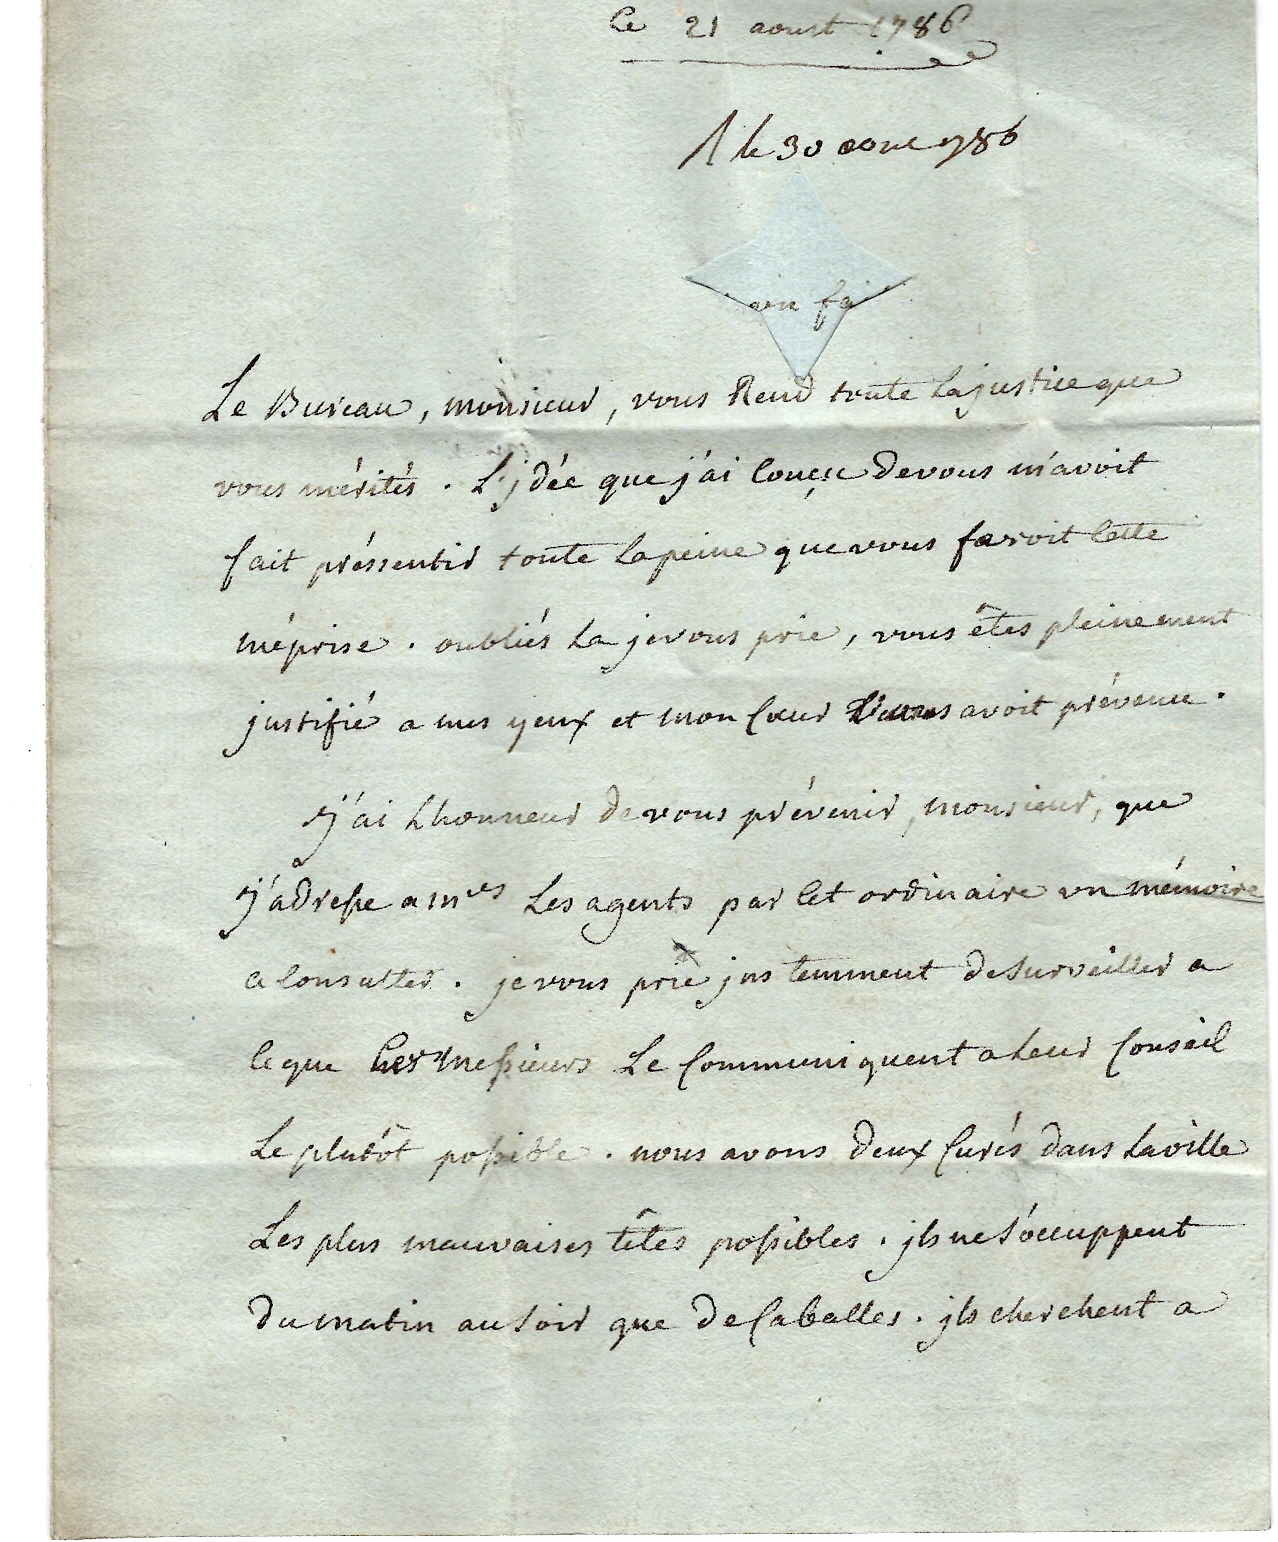 Ce 21 aoust 1786
R le 30 aout 1786
en fa
Le Bureau, monsieur, vous Rend toute la justice que
vous mérités. L'jdée que j'ai conçue de vous m'avoit
fait préssentir toute la peine que vous feroit cette
méprise. oubliés la je vous prie, vous êtes pleinement
justifié a mes yeux et mon coeur vous avoit prévenu.
j'ai Lhonneur de vous prévenir, monsieur, que
j'adresse a mrs Les agents par cet ordinaire un mémoire
a consulter. je vous prie jnstemment de surveiller a
ce que ces messieurs Le communiquent a Leur conseil
Le plutôt possible. nous avons deux curés dans la ville
Les plus mauvaises têtes possibles. jls ne s'occuppent
du matin au soir que de caballes. jls cherchent a